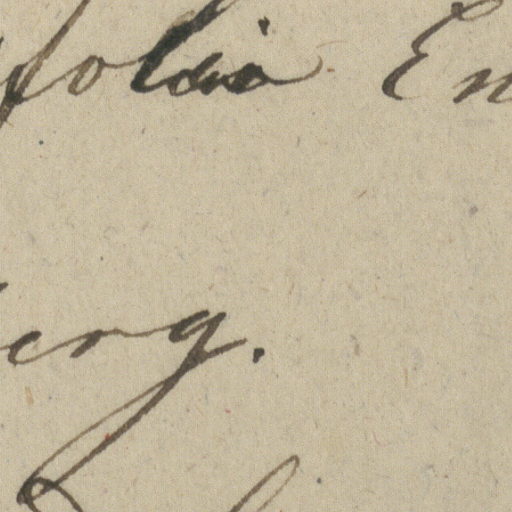 folia En
erg.